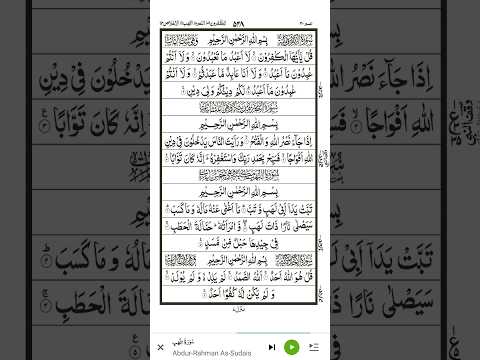 ٥٣٨
بِسْمِ اللهِ الرَّحْمٰنِ الرَّحِيْمِ
قُلْ يٰٓاَيُّهَا الْكٰفِرُوْنَ لَآ اَعْبُدُ مَا تَعْبُدُوْنَ وَلَآ اَنْتُمْ
عٰبِدُوْنَ مَآ اَعْبُدُ وَلَآ اَنَا عَابِدٌ مَّا عَبَدْتُّمْ وَلَآ اَنْتُمْ
عٰبِدُوْنَ مَآ اَعْبُدُ لَكُمْ دِيْنُكُمْ وَلِيَ دِيْنِ
بِسْمِ اللهِ الرَّحْمٰنِ الرَّحِيْمِ
اِذَا جَآءَ نَصْرُ اللهِ وَالْفَتْحُ وَرَاَيْتَ النَّاسَ يَدْخُلُوْنَ فِيْ دِيْنِ
اللهِ اَفْوَاجًا فَسَبِّحْ بِحَمْدِ رَبِّكَ وَاسْتَغْفِرْهُ اِنَّهٗ كَانَ تَوَّابًا
بِسْمِ اللهِ الرَّحْمٰنِ الرَّحِيْمِ
تَبَّتْ يَدَآ اَبِيْ لَهَبٍ وَّتَبَّ مَآ اَغْنٰى عَنْهُ مَالُهٗ وَمَا كَسَبَ
سَيَصْلٰى نَارًا ذَاتَ لَهَبٍ وَّامْرَاَتُهٗ حَمَّالَةَ الْحَطَبِ
فِيْ جِيْدِهَا حَبْلٌ مِّنْ مَّسَدٍ
بِسْمِ اللهِ الرَّحْمٰنِ الرَّحِيْمِ
قُلْ هُوَ اللهُ اَحَدٌ اَللهُ الصَّمَدُ لَمْ يَلِدْ وَلَمْ يُوْلَدْ
وَلَمْ يَكُنْ لَّهٗ كُفُوًا اَحَدٌ
سُوْرَةُ اللَّهَب
Abdur-Rahman As-Sudais
اِذَا جَآءَ نَصْرُ
اللهِ اَفْوَاجًا
تَبَّتْ يَدَآ اَبِيْ
سَيَصْلٰى نَارًا
يَدْخُلُوْنَ فِيْ دِيْنِ
اِنَّهٗ كَانَ تَوَّابًا
لُهٗ وَمَا كَسَبَ
لَةَ الْحَطَبِ